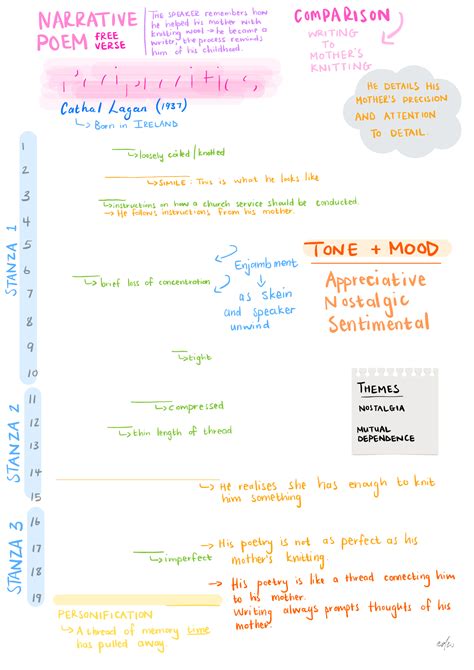 NARRATIVE
POEM FREE
VERSE
THE SPEAKER REMEMBERS HOW
HE HELPED HIS MOTHER WITH
KNITTING WOOL → HE BECAME A
WRITER, THE PROCESS REMINDS
HIM OF HIS CHILDHOOD.
COMPARISON
WRITING
TO
MOTHER'S
KNITTING
HE DETAILS HIS
MOTHER'S PRECISION
AND ATTENTION
TO DETAIL.
Cathal Lagan (1937)
Born in IRELAND
STANZA 1
1
loosely coiled / knotted
2
SIMILE: This is what he looks like
3
instructions on how a church service should be conducted.
4
He follows instructions from his mother.
5
6
7
8
7
9
10
Enjambment
brief loss of concentration
as skein
and speaker
unwind
TONE + MOOD
Appreciative
Nostalgic
Sentimental
tight
THEMES
NOSTALGIA
MUTUAL
DEPENDENCE
STANZA 2
11
compressed
12
thin length of thread
13
14
He realises she has enough to knit
him something
15
STANZA 3
16
17
imperfect
His poetry is not as perfect as his
mother's knitting.
18
His poetry is like a thread connecting him
to his mother.
Writing always prompts thoughts of his
mother.
19
PERSONIFICATION
A thread of memory
has pulled away.